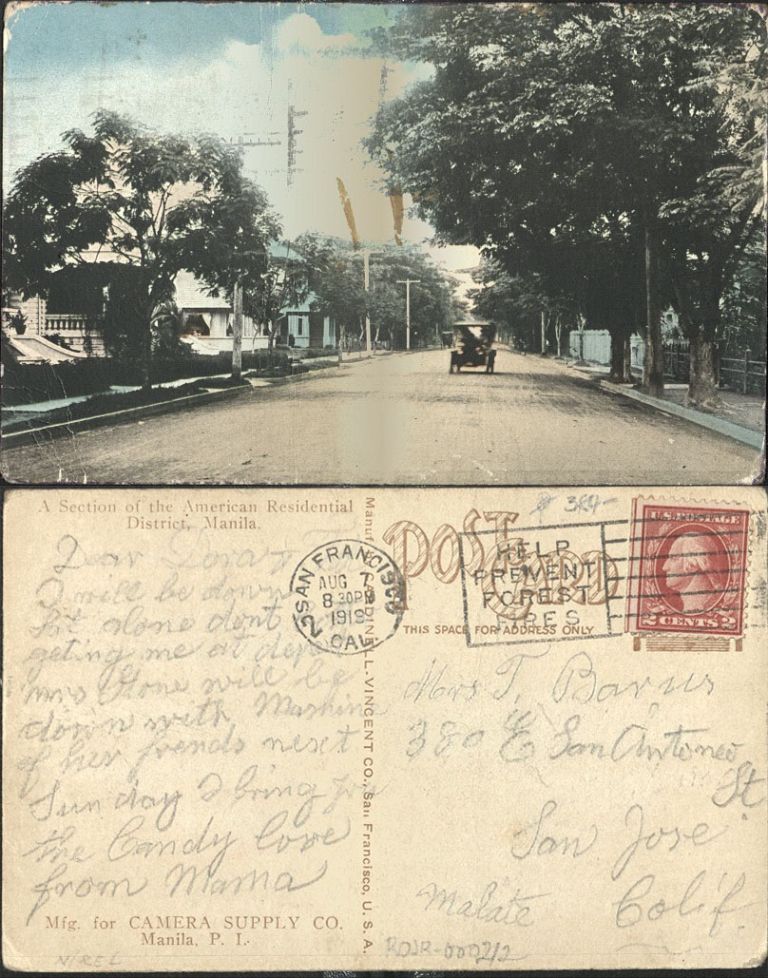 A Section of the American Residential
District, Manila.
Dear Dora
I will be down
Sat alone dont
geting me at depo
Mrs Stone will be
down with
of her frends next
Sunday I bring you
the Candy love
from Mama
Mfg. for CAMERA SUPPLY CO.
Manila, P. I.
N/REL
L-VINCENT CO., San Francisco, U. S. A.
POST CARD
THIS SPACE FOR ADDRESS ONLY
SAN FRANCISCO
AUG 7
8 30PM
1919
CAL.
2
HELP
PREVENT
FOREST
FIRES
U.S. POSTAGE
2 CENTS 2
384-
Mrs T. Barus
380 E San Antoneo
St
San Jose
Calif.
Malate
RDJR-000212